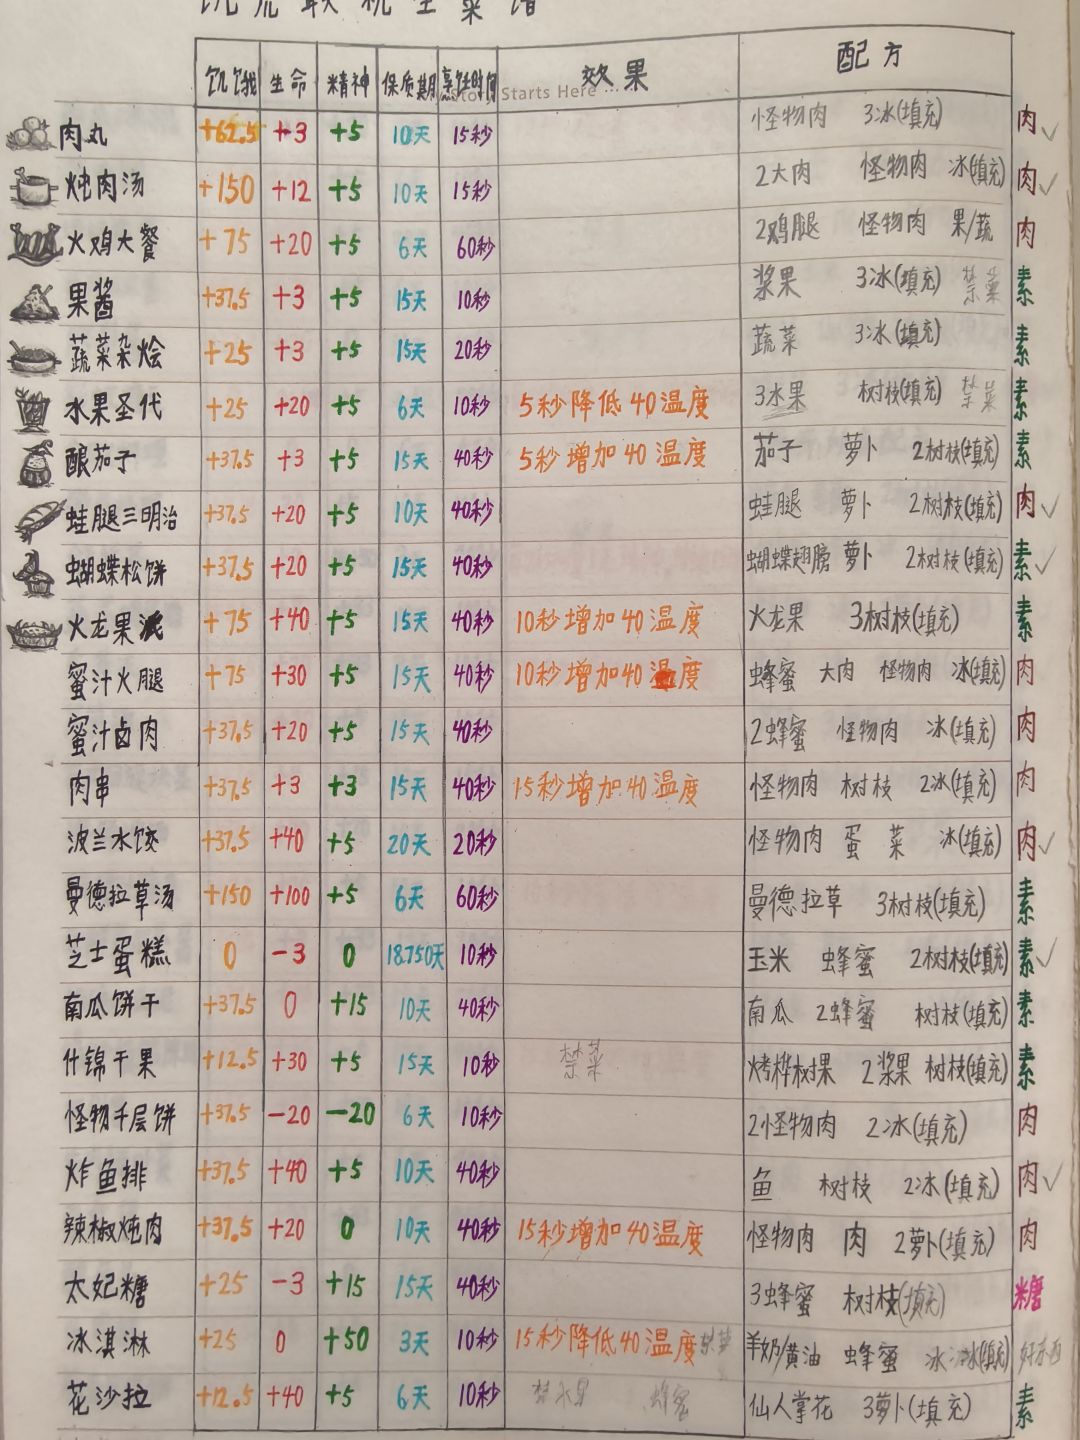 饥荒联机生菜谱
饥饿 生命 精神 保质期 烹饪时间 效果 配方
Story Starts Here ...
肉丸 +62.5 +3 +5 10天 15秒 怪物肉 3冰(填充) 肉✓
炖肉汤 +150 +12 +5 10天 15秒 2大肉 怪物肉 冰(填充) 肉✓
火鸡大餐 +75 +20 +5 6天 60秒 2鸡腿 怪物肉 果/蔬 肉
果酱 +37.5 +3 +5 15天 10秒 浆果 3冰(填充) 禁菜 素
蔬菜杂烩 +25 +3 +5 15天 20秒 蔬菜 3冰(填充) 素
水果圣代 +25 +20 +5 6天 10秒 5秒降低40温度 3水果 树枝(填充) 禁菜 素
酿茄子 +37.5 +3 +5 15天 40秒 5秒增加40温度 茄子 萝卜 2树枝(填充) 素
蛙腿三明治 +37.5 +20 +5 10天 40秒 蛙腿 萝卜 2树枝(填充) 肉✓
蝴蝶松饼 +37.5 +20 +5 15天 40秒 蝴蝶翅膀 萝卜 2树枝(填充) 素✓
火龙果派 +75 +40 +5 15天 40秒 10秒增加40温度 火龙果 3树枝(填充) 素
蜜汁火腿 +75 +30 +5 15天 40秒 10秒增加40温度 蜂蜜 大肉 怪物肉 冰(填充) 肉
蜜汁卤肉 +37.5 +20 +5 15天 40秒 2蜂蜜 怪物肉 冰(填充) 肉
肉串 +37.5 +3 +3 15天 40秒 15秒增加40温度 怪物肉 树枝 2冰(填充) 肉
波兰水饺 +37.5 +40 +5 20天 20秒 怪物肉 蛋 菜 冰(填充) 肉✓
曼德拉草汤 +150 +100 +5 6天 60秒 曼德拉草 3树枝(填充) 素
芝士蛋糕 0 -3 0 18.750天 10秒 玉米 蜂蜜 2树枝(填充) 素✓
南瓜饼干 +37.5 0 +15 10天 40秒 南瓜 2蜂蜜 树枝(填充) 素
什锦干果 +12.5 +30 +5 15天 10秒 禁菜 烤桦树果 2浆果 树枝(填充) 素
怪物千层饼 +37.5 -20 -20 6天 10秒 2怪物肉 2冰(填充) 肉
炸鱼排 +37.5 +40 +5 10天 40秒 鱼 树枝 2冰(填充) 肉✓
辣椒炖肉 +37.5 +20 0 10天 40秒 15秒增加40温度 怪物肉 肉 2萝卜(填充) 肉
太妃糖 +25 -3 +15 15天 40秒 3蜂蜜 树枝(填充) 糖
冰淇淋 +25 0 +50 3天 10秒 15秒降低40温度 禁菜 羊奶/黄油 蜂蜜 冰 冰(填充) 好东西
花沙拉 +12.5 +40 +5 6天 10秒 禁水果 蜂蜜 仙人掌花 3萝卜(填充) 素